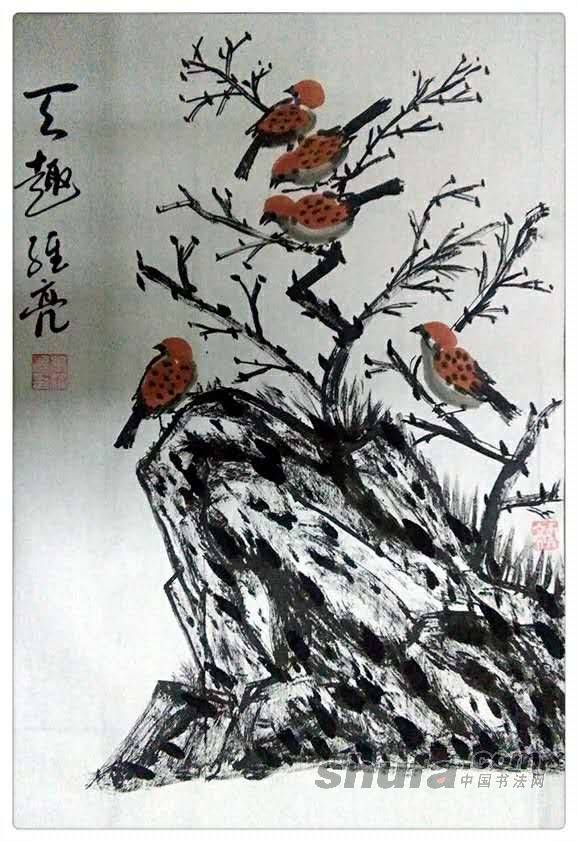 天趣维亮
shufa.com
中国书法网